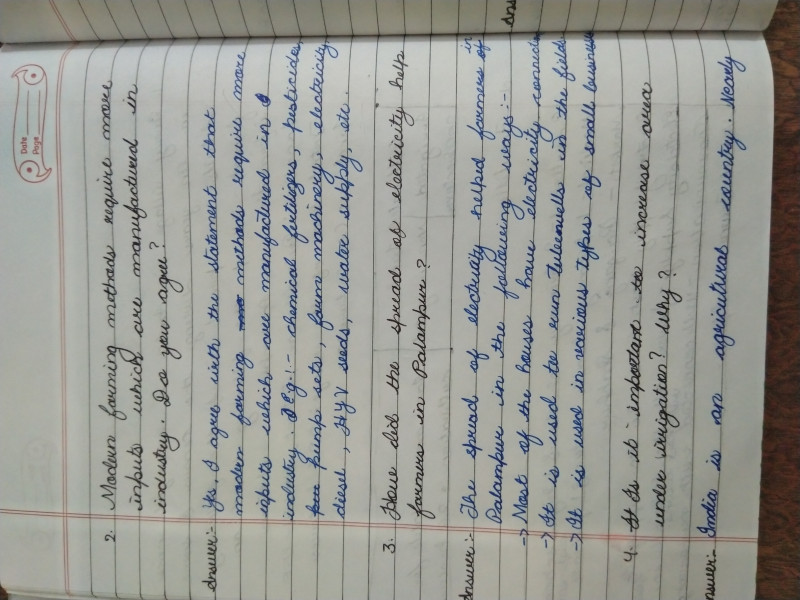 Date
Page
2. Modern farming methods require more
inputs which are manufactured in
industry. Do you agree?
Answer:- Yes, I agree with the statement that
modern farming methods require more
iputs which are manufactured in
industry. Eg:- chemical fertilizers, pesticides,
pump sets, farm machinery, electricity,
diesel, HYV seeds, water supply, etc.
3. How did the spread of electricity help
farmers in Palampur?
Answer:- The spread of electricity helped farmers of in
Palampur in the following ways:-
-> Most of the houses have electricity
-> It is used to run tubewells in the field
-> It is used in various types of small
4. Is it important to increase area
under irrigation? Why?
Answer:- India is an agricultural country. Nearly
Ans